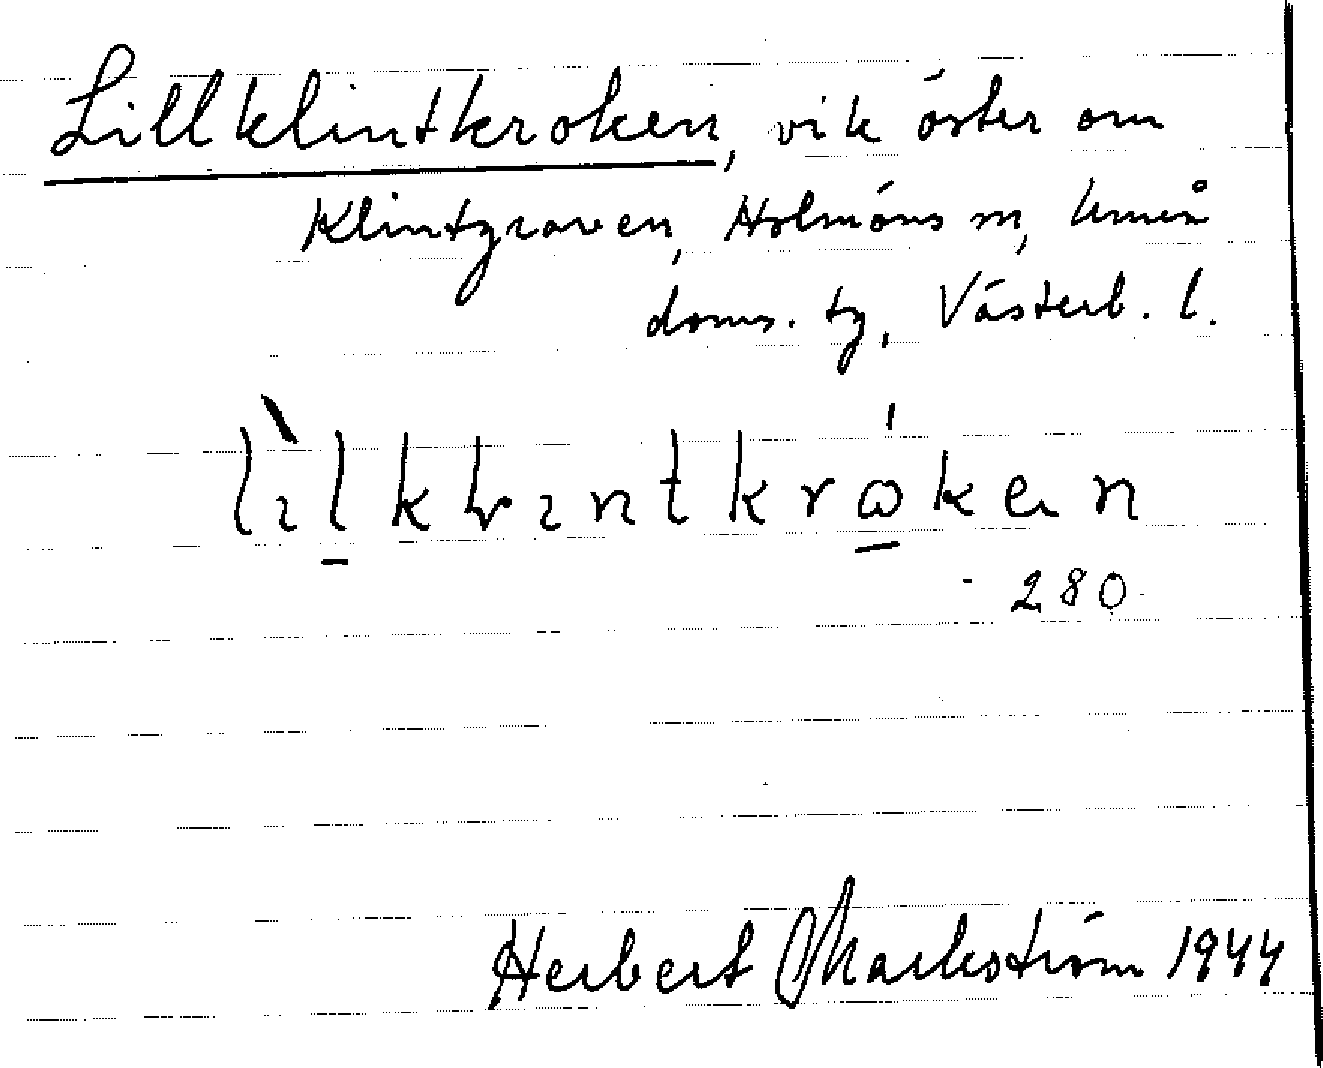 Lillklintkroken, vik öster om
Klintgraven, Holmöns sn, Umeå
doms. tg, Västerb. l.
280
Herbert Markström 1944